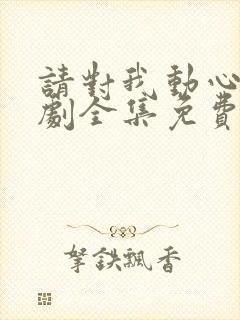 請對我動心
劇全集免費
拏鉄飄香